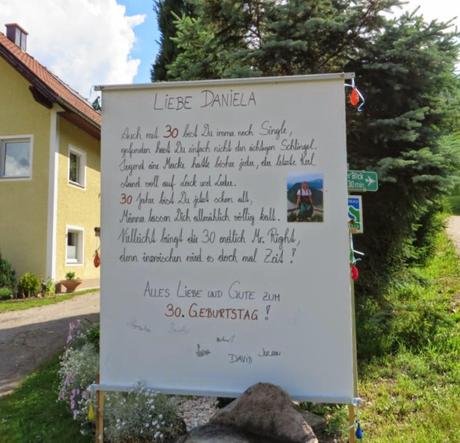 LIEBE DANIELA
Auch mit 30 bist Du immer noch Single,
gefunden hast Du einfach nicht den richtigen Schlingel.
Irgend eine Macke hatte bisher jeder, der letzte Kerl
stand voll auf Lack und Leder.
30 Jahre bist Du jetzt schon alt,
Männer lassen Dich allmählich völlig kalt.
Vielleicht bringt die 30 endlich Mr. Right,
denn inzwischen wird es doch mal Zeit!
ALLES LIEBE UND GUTE ZUM
30. GEBURTSTAG!
DAVID
30 min